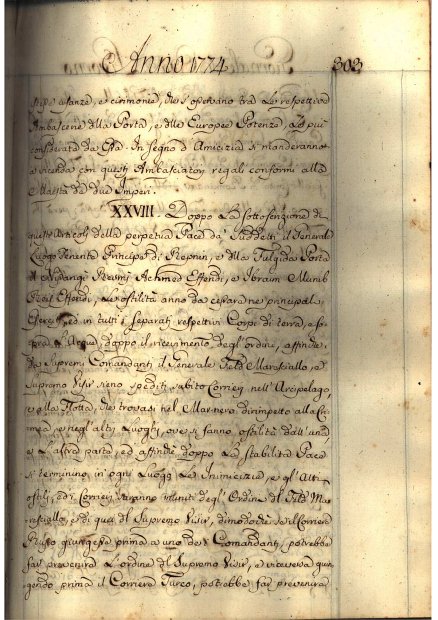 Anno 1774 303
stesse usanze, e cerimonie, che si osservano tra le respettive
Ambascerie della Porta, e delle Europee Potenze, le più
considerate da Essa. In segno d'Amicizia si manderanno
a vicenda con questi Ambasciatori regali conformi alla
Maestà de due Imperi.
XXVIII. Doppo la sottoscrizione di
questi Articoli della perpetua Pace da' suddetti il Generale
Luogotenente Principe di Repnin, e dalla Fulgida Porta
il Nisangi Resmi Achmed Effendi, e Ibraim Munib
Reis Effendi, le ostilità anno da cessare ne principali
Eserciti, ed in tutti i separati respettivi Corpi di terra, e so-
pra l'Acque doppo il ricevimento degl'ordini, affinche
da Supremi Comandanti il Generale Feld Maresciallo, ed
Supremo Visir sieno spediti subito Corrieri nell'Arcipelago,
e alla Flotta, che trovasi nel Mar nero dirimpetto alla Cri-
mea, e negl'altri Luoghi, ove si fanno ostilità dall'una
e l'altra parte, ed affinche doppo la stabilita Pace
si terminino in ogni Luogo le Inimicizie, e gl'Atti
ostili, ed i Corrieri saranno muniti degl'Ordini del Feld Ma-
resciallo, e di quei del Supremo Visir, dimodoche se il Corriere
Russo giungesse prima a uno de' Comandanti, potrebbe
far prevenire l'ordine del Supremo Visir, e viceversa giun-
gendo prima il Corriere Turco, potrebbe far prevenire